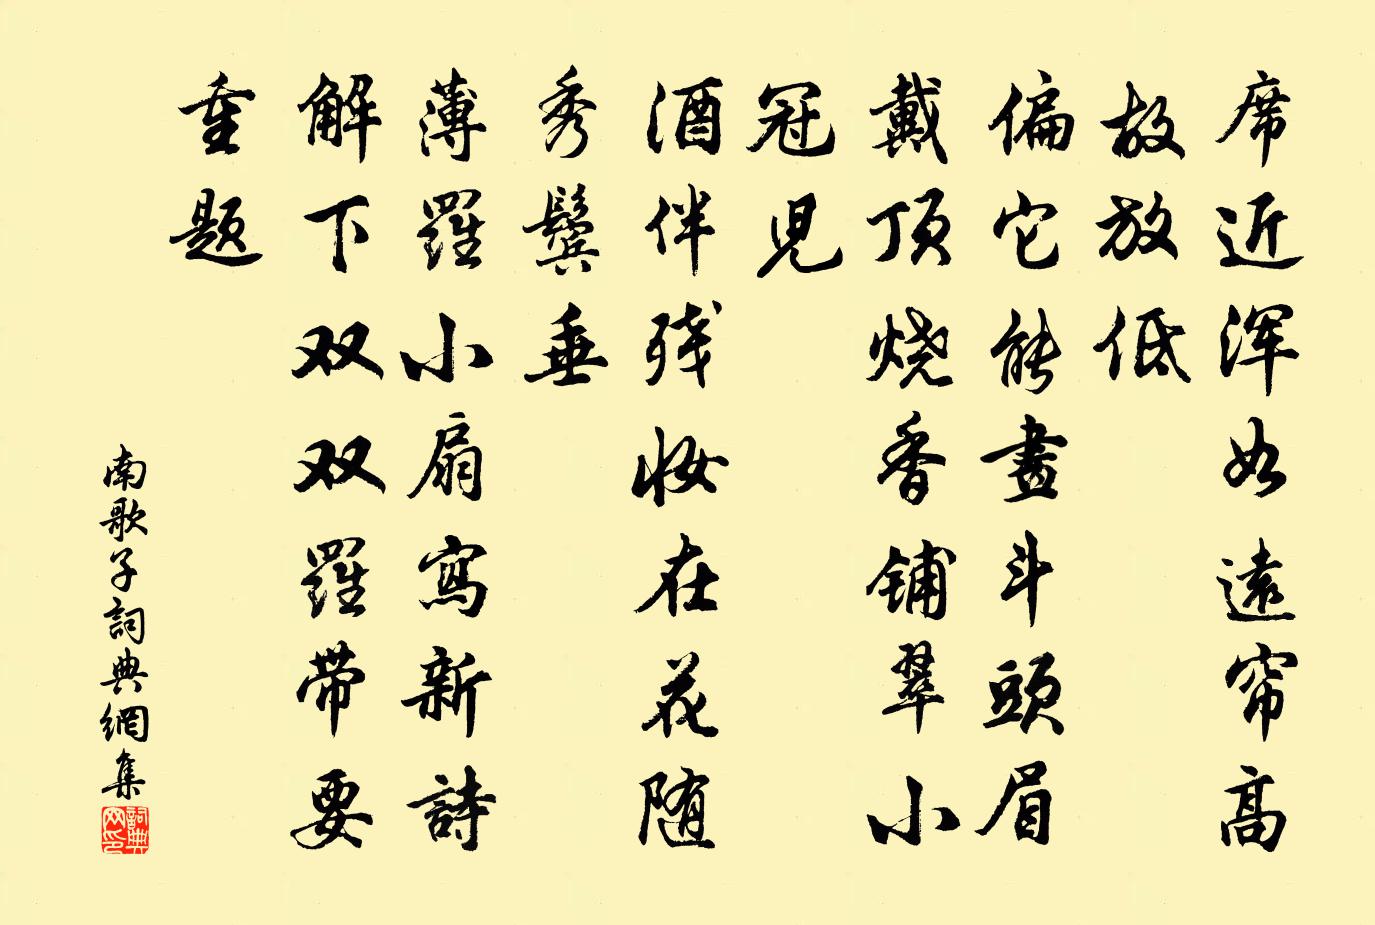 席近渾如遠帘高
故放低
偏它能畫斗頭眉
戴頂烧香铺翠小
冠兒
酒伴残妆在花随
秀鬓垂
薄羅小扇寫新詩
解下双双羅带要
重题
南歌子詞典網集
詞典網印